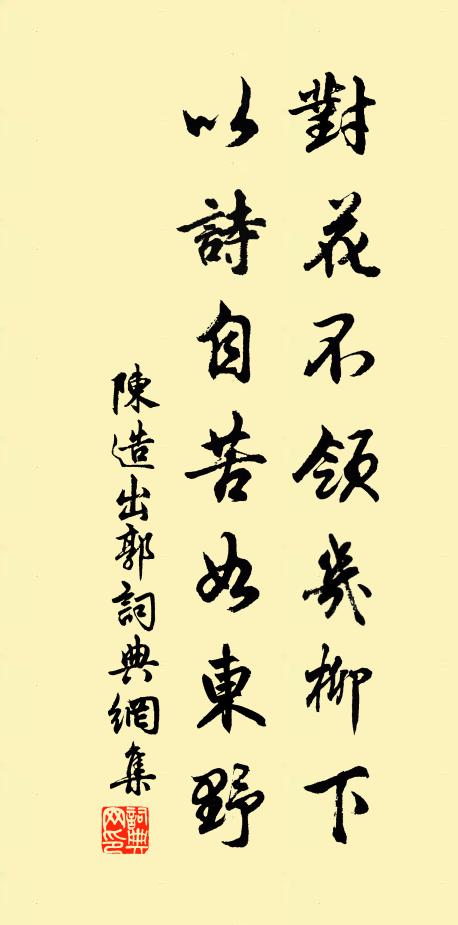 對花不領幾柳下
以詩自苦如東野
陳造出郭詞典網集
詞典网印